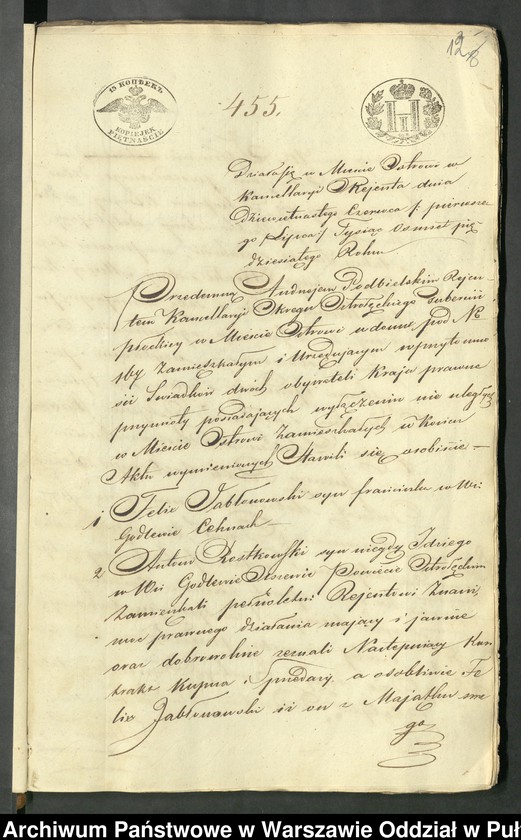 15 КОПѢЕКЪ
KOPIEJEK PIĘTNAŚCIE
455.
Działo się w Mieście Ostrowi w
Kancellaryi Rejenta dnia
Dziewiętnastego Czerwca /: pierwsze
go Lipca :/ Tysiąc Osmset pię
dziesiątego Roku
Przedemną Andrzejem Podbielskim Rejen-
tem Kancellaryi Okręgu Ostrołęckiego Gubernii
Płockiey w Mieście Ostrowi w domu pod No
167 Zamieszkałym i Urzędującym w przytomno
ści Świadków dwóch obywateli Kraju prawne
przymioty posiadających wyłączeniu nie uległych
w Mieście Ostrowi Zamieszkałych w Końcu
Aktu wymienionych Stawili się osobiście
1 Felix Jabłonowski syn Franciszka w Wsi
Godlewie Cehnach
2 Antoni Kostkowski syn niegdy Idziego
w Wsi Godlewie Powiecie Ostrołęckim
Zamieszkali pełnoletni Rejentowi Znani
moc prawnego działania mający i jawnie
oraz dobrowolnie zeznali Następujący Kon
trakt Kupna i Sprzedaży, a osobliwie Fe
lix Jabłonowski iż on z Majątku swe
go
Archiwum Państwowe w Warszawie Oddział w Puł